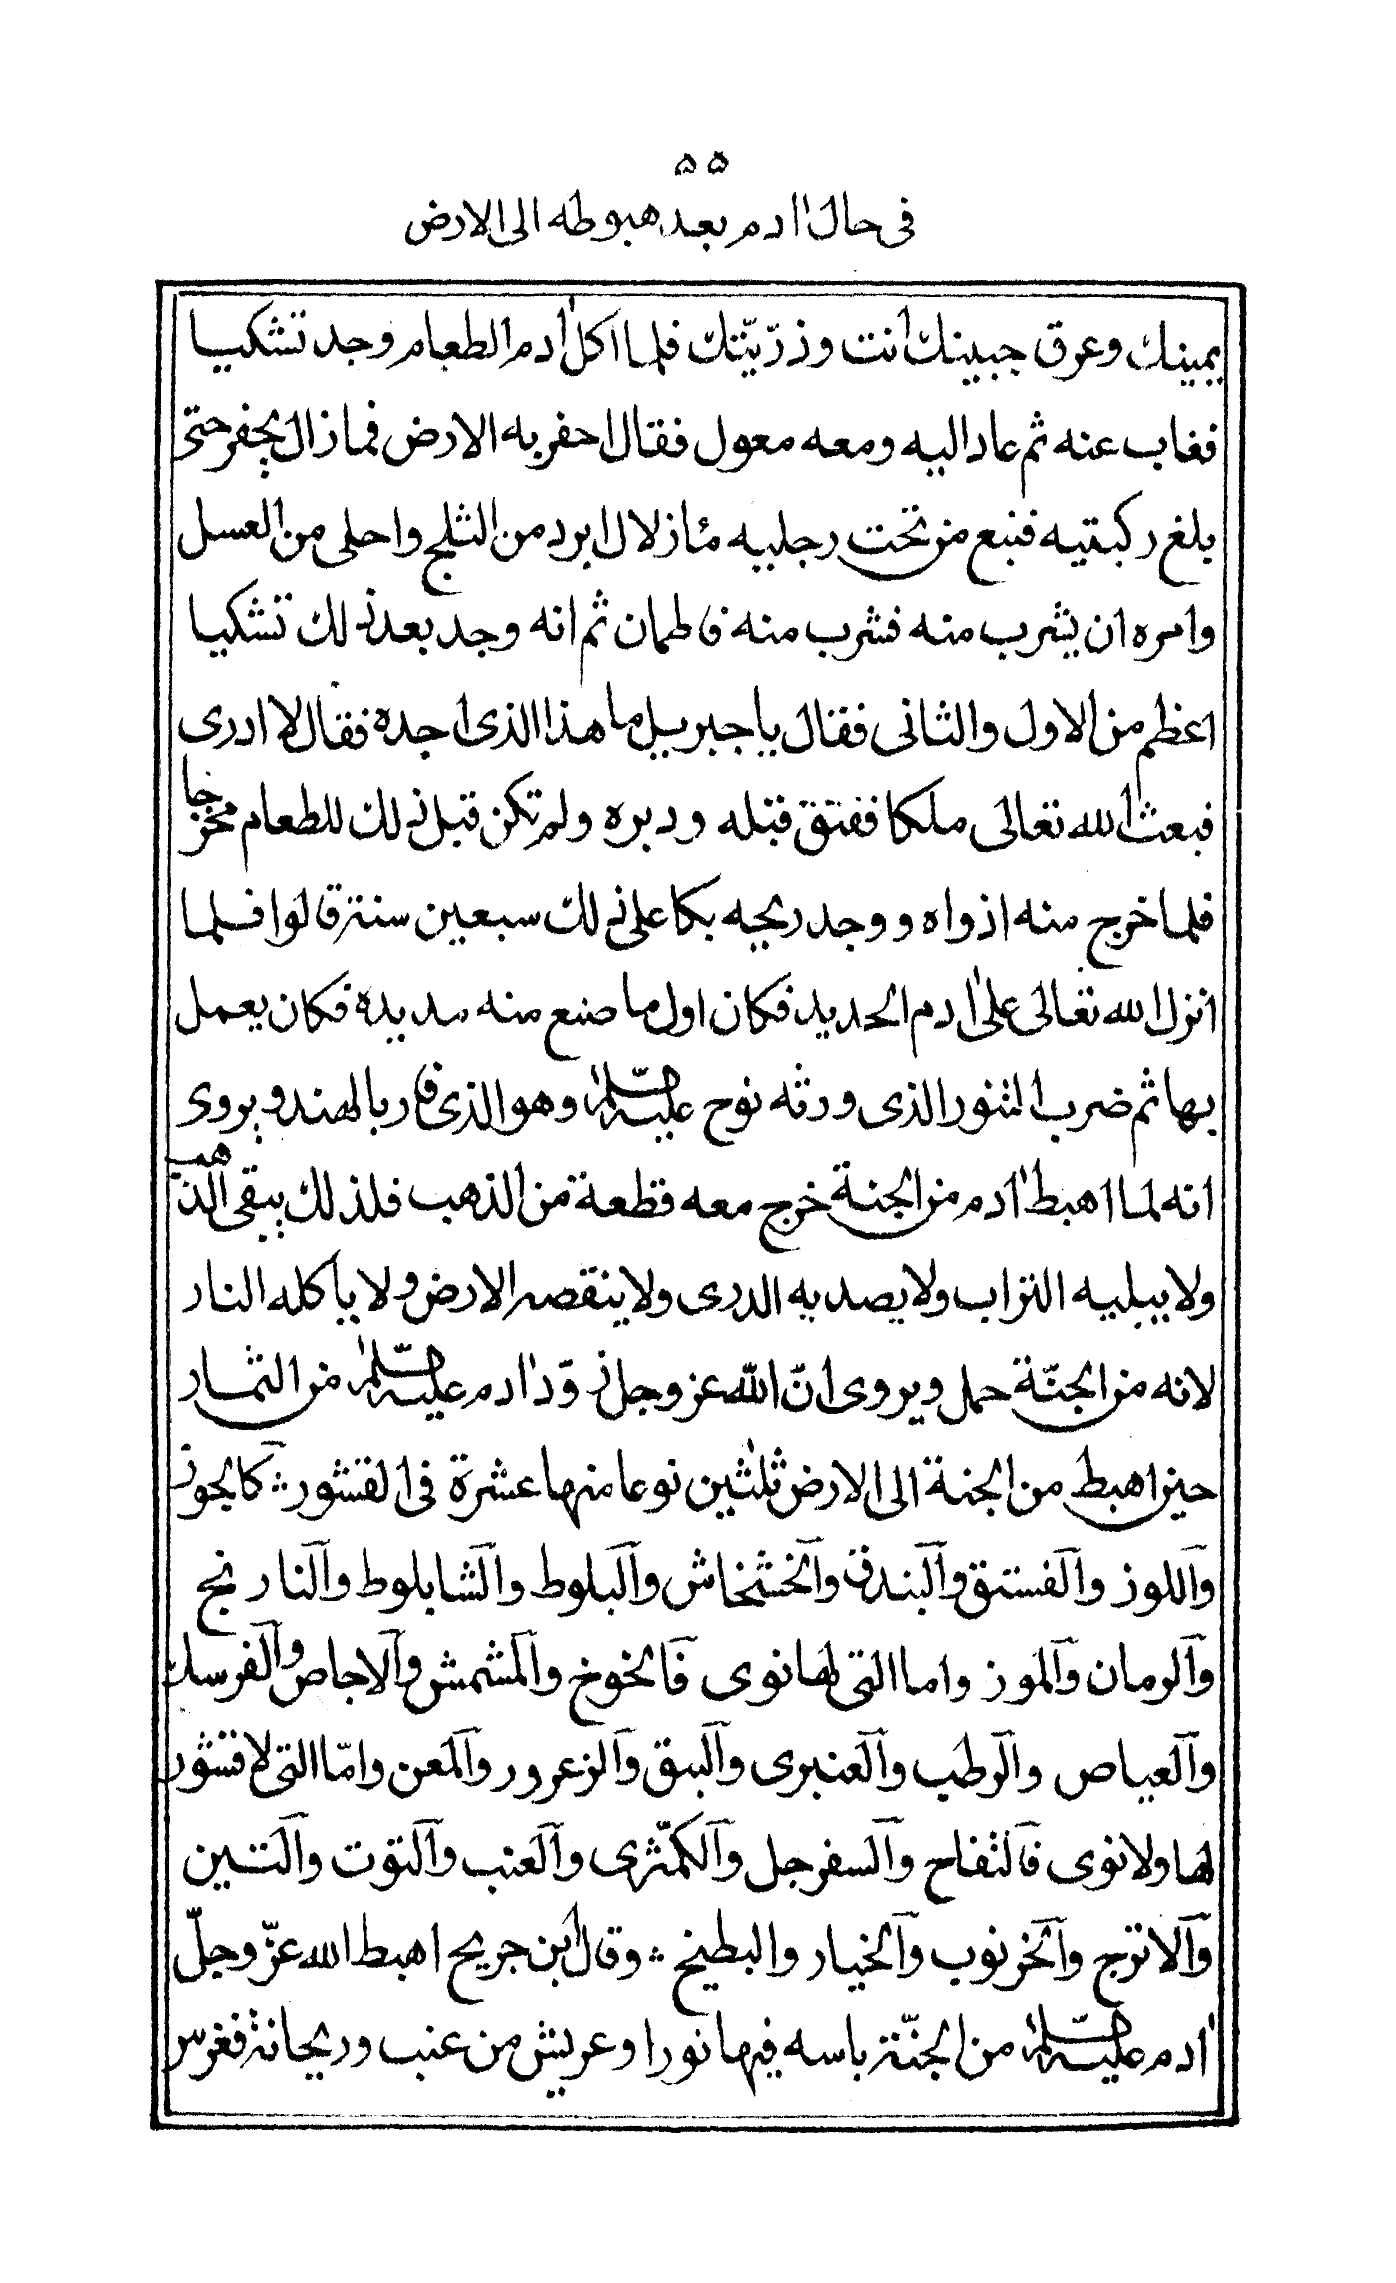 ۵۵
فى حال اٰدم بعد هبوطه الى الارض
يمينك وعرق جبينك انت وذرّيّتك فلما اكل اٰدم الطعام وجد تشكيا
فغاب عنه ثم عاد اليه ومعه معول فقال احفر به الارض فما زال يحفر حتى
بلغ ركبتيه فنبع من تحت رجليه ماء زلال ابرد من الثلج واحلى من العسل
وامره ان يشرب منه فشرب منه فاطمان ثم انه وجد بعد ذلك تشكيا
اعظم من الاول والثانى فقال يا جبريل ما هذا الذى اجده فقال لا ادرى
فبعث الله تعالى ملكا ففتق قبله ودبره ولم تكن قبل ذلك للطعام مخرجا
فلما خرج منه اذواه ووجد ريحيه بكا على ذلك سبعين سنة قالوا فلما
انزل الله تعالى على اٰدم الحديد فكان اول ما صنع منه مديدة فكان يعمل
بها ثم ضرب التنور الذى ورثه نوح عليه السلم وهو الذى فار بالهند ويروى
انه لما اهبط اٰدم من الجنة خرج معه قطعة من الذهب فلذلك يبقى الذهب
ولا يبليه التراب ولا يصديه الدرى ولا ينقصه الارض ولا ياكله النار
لانه من الجنّة حمل ويروى انّ الله عز وجل زوّد اٰدم عليه السلم من الثمار
حين اهبط من الجنة الى الارض ثلٰثين نوعا منها عشرة فى القشور كالجوز
واللوز والفستق والبندق والخشخاش والبلوط والشابلوط والنارنج
والرمان والموز واما التى لها نوى فالخوخ والمشمش والاجاص والفرسك
والعياص والرطب والعنبرى والبق والزعرور والمعن وامّا التى لا قشور
لها ولا نوى فالتفاح والسفرجل والكمّثرى والعنب والتوت والتين
والاترج والخرنوب والخيار والبطيخ وقال ابن جريح اهبط الله عزّ وجلّ
اٰدم عليه السلم من الجنّة باسه فيها نورا وعريش من عنب وريحانة فغرس